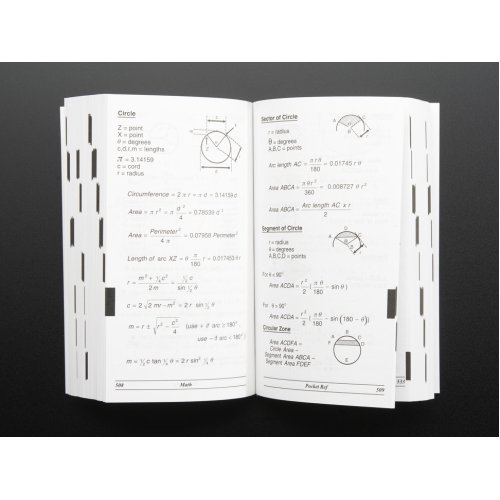 Circle
Z = point
X = point
θ = degrees
c,d,r,m = lengths
π = 3.14159
c = cord
r = radius
Circumference = 2 π r = π d = 3.14159 d
Area = π r² = π d²/4 = 0.78539 d²
Area = Perimeter²/4 π = 0.07958 Perimeter²
Length of arc XZ = θ π/180 r = 0.017453 θ r
r = (m² + ¼ c²)/2 m = ½ c/sin ½ θ
c = 2 √(2 mr - m²) = 2 r sin ½ θ
m = r ± √(r² - c²/4) (use + if arc ≥ 180°
use - if arc < 180°)
m = ½ c tan ¼ θ = 2 r sin² ¼ θ
508 Math
Sector of Circle
r = radius
θ = degrees
A,B,C = points
Arc length AC = π r θ/180 = 0.01745 r θ
Area ABCA = π θ r²/360 = 0.008727 θ r²
Area ABCA = Arc length AC x r/2
Segment of Circle
r = radius
θ = degrees
A,B,C,D = points
For θ < 90°
Area ACDA = r²/2 (π θ/180 - sin θ)
For θ > 90°
Area ACDA = r²/2 (π θ/180 - sin (180 - θ))
Circular Zone
Area ACDFA =
Circle Area -
Segment Area ABCA -
Segment Area FDEF
Pocket Ref 509
535